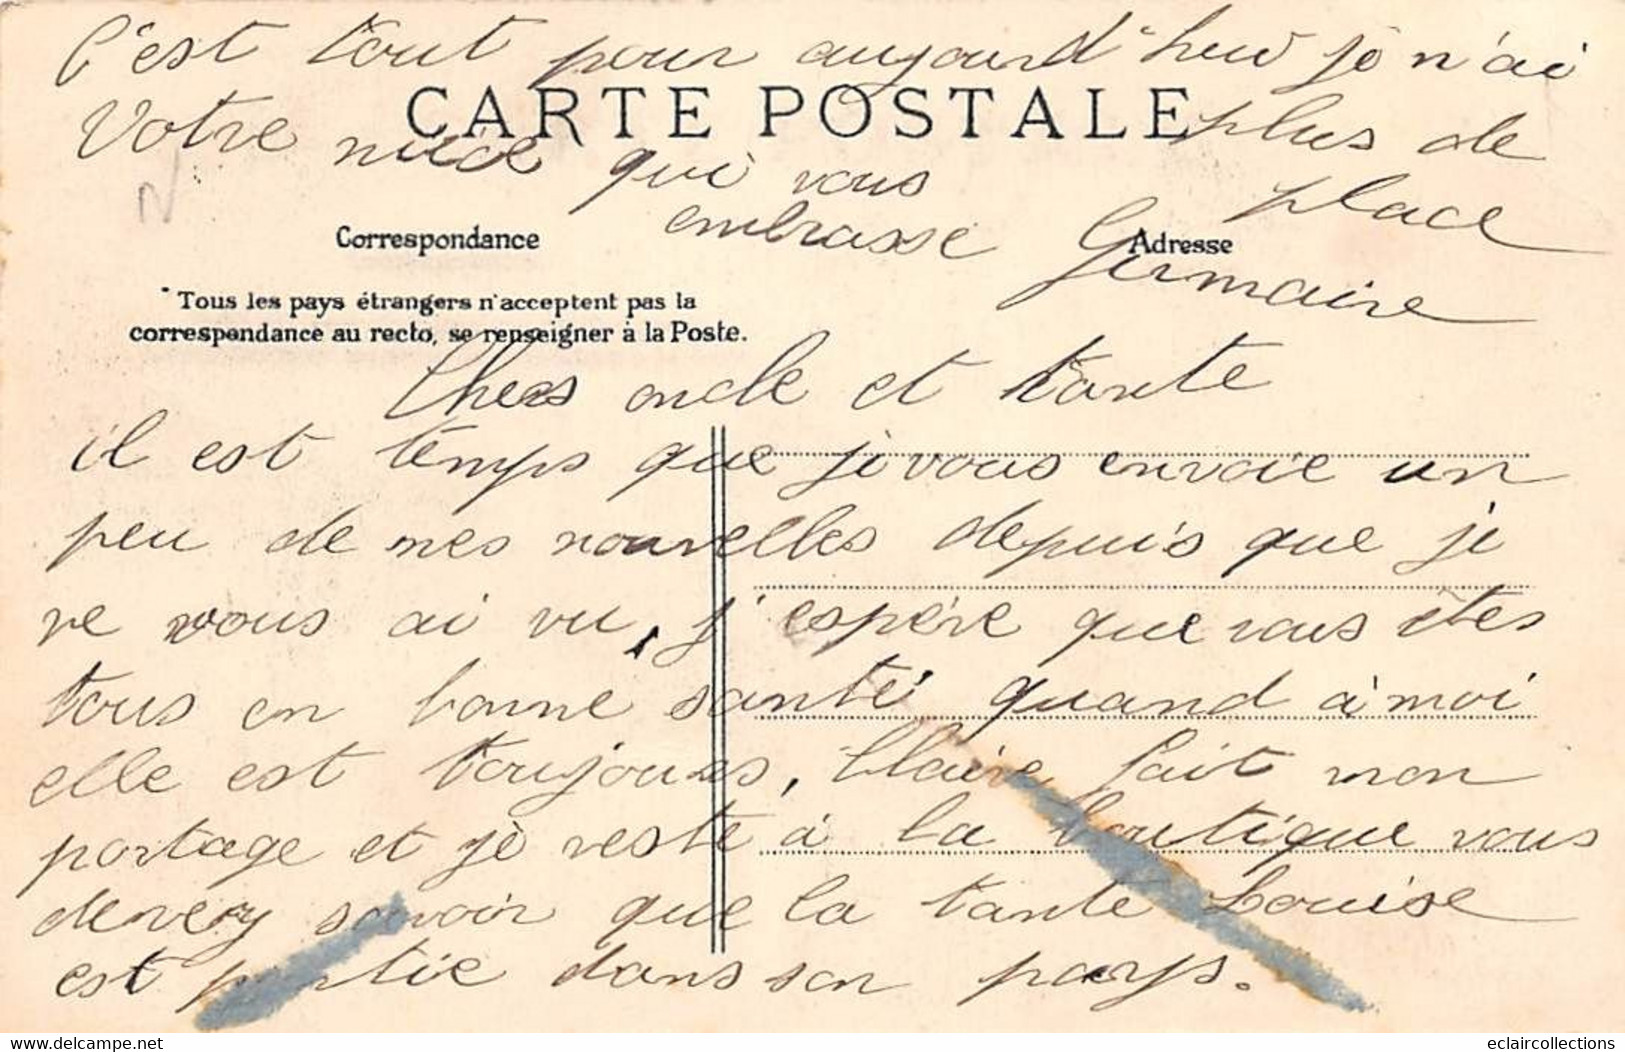 C'est tout pour aujourd'hui je n'ai
plus de
place
Votre nièce qui vous
embrasse
Germaine
CARTE POSTALE
Correspondance
Adresse
Tous les pays étrangers n'acceptent pas la
correspondance au recto, se renseigner à la Poste.
Chers oncle et tante
il est temps que je vous envoie un
peu de mes nouvelles depuis que je
ne vous ai vu, j'espére que vous êtes
tous en bonne santé quand à moi
elle est toujours, Claire fait mon
portage et je reste à la boutique vous
devery savoir que la tante Louise
est partie dans son pays.
delcampe.net
eclaircollections